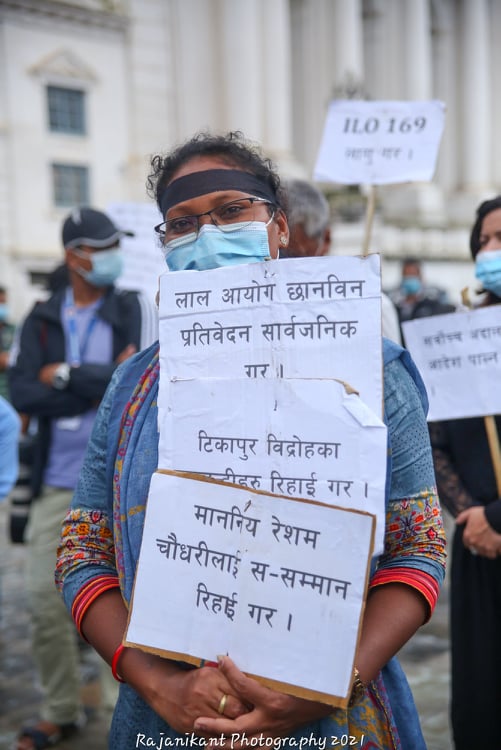 ILO 169
लागु गर ।
लाल आयोग छानविन
प्रतिवेदन सार्वजनिक
गर ।
टिकापुर विद्रोहका
रिहाई गर ।
माननिय रेशम
चौधरीलाई स-सम्मान
रिहाई गर ।
सर्वोच्च अदाल
आदेश पालन
Rajanikant Photography 2021